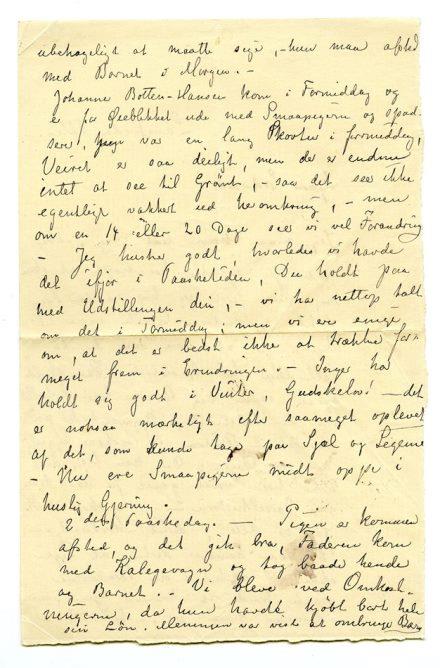 ubehageligt at maatte sige, - hun maa afsted
med Barnet i Morgen. -
Johanne Botten-Hansen kom i Formiddag og
er for Øieblikket ude med Smaapigerne og spad-
sere, var en lang Skovtur i formiddag,
Veiret er saa deiligt, men der er endnu
intet at see til Grönt, - saa det seer ikke
egentligt vakkert ud heromkring, - men
om en 14 eller 20 Dage seer vi vel Forandring
- Jeg husker godt, hvorledes vi havde
det ifjor i Paasketiden, Du holdt paa
med Udstillingen din, - vi har nettop talt
om det i Formiddag; men vi ere enige
om, at det er bedst ikke at trække for
meget frem i Erindringen. - Inger har
holdt sig godt i Vinter, Gudskelov! - det
er noksaa mærkeligt efter saameget oplevet
af det, som kunde tage paa Sjæl og Legeme
- Nu ere Smaapigerne midt oppe i
huslig Gjerning.
2 den Paaskedag. - Pigen er kommen
afsted, og det gik bra, Faderen kom
med Kalegevogn og tog baade hende
og Barnet. - Vi bleve ved Omkost-
ningerne, da hun havde kjöbt bort hele
sin Lön. Meningen var viste at ombringe